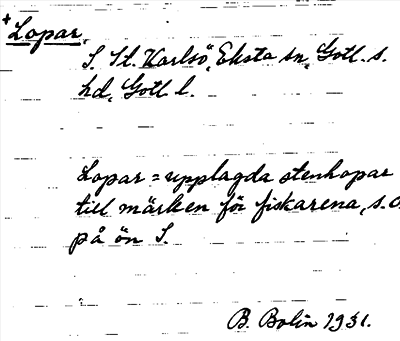 +Lopar.
S. St. Karlsö, Eksta sn, Gotl. s.
hd, Gotl. l.
Lopar = upplagda stenhopar
till märken för fiskarena, s.o.
på ön S.
B. Bolin 1931.